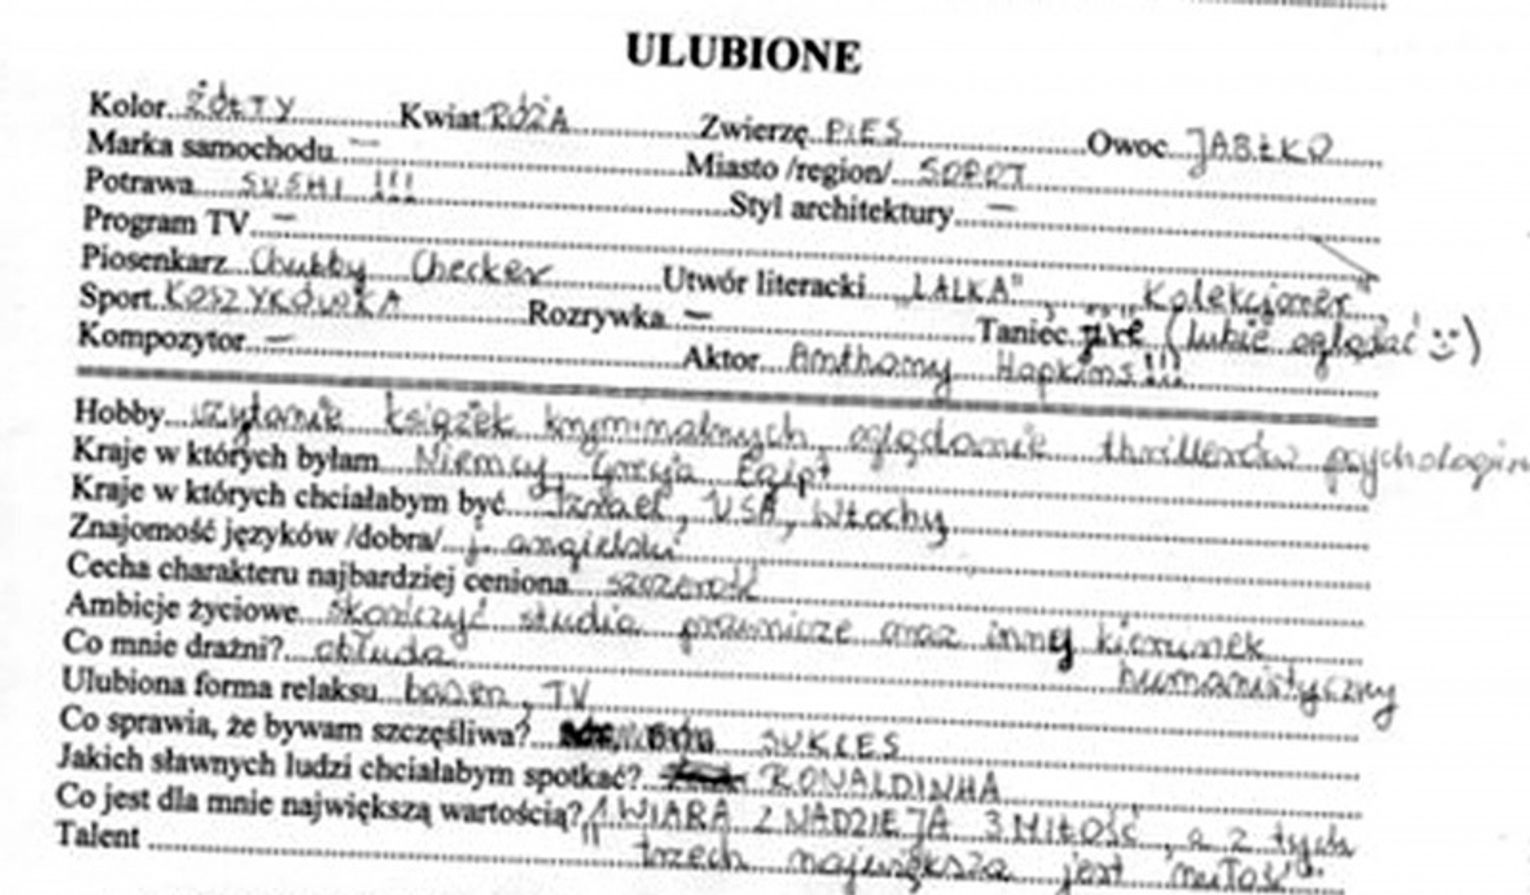 ULUBIONE
Kolor ŻÓŁTY Kwiat RÓŻA Zwierzę PIES Owoc JABŁKO
Marka samochodu — Miasto /region/ SOPOT
Potrawa SUSHI !!! Styl architektury —
Program TV —
Piosenkarz Chubby Checker Utwór literacki „LALKA", „Kolekcjoner"
Sport KOSZYKÓWKA Rozrywka — Taniec (lubię oglądać :))
Kompozytor — Aktor Anthony Hopkins!!!
Hobby czytanie książek kryminalnych oglądanie thrillerów
Kraje w których byłam Niemcy Grecja Egipt
Kraje w których chciałabym być Izrael, USA, Włochy
Znajomość języków /dobra/ j. angielski
Cecha charakteru najbardziej ceniona szczerość
Ambicje życiowe skończyć studia prawnicze oraz inny kierunek
humanistyczny
Co mnie drażni? obłuda
Ulubiona forma relaksu basen, TV
Co sprawia, że bywam szczęśliwa? SUKCES
Jakich sławnych ludzi chciałabym spotkać? RONALDINHA
Co jest dla mnie największą wartością? „1 WIARA 2 NADZIEJA 3 MIŁOŚĆ, a z tych
trzech największa jest miłość".
Talent